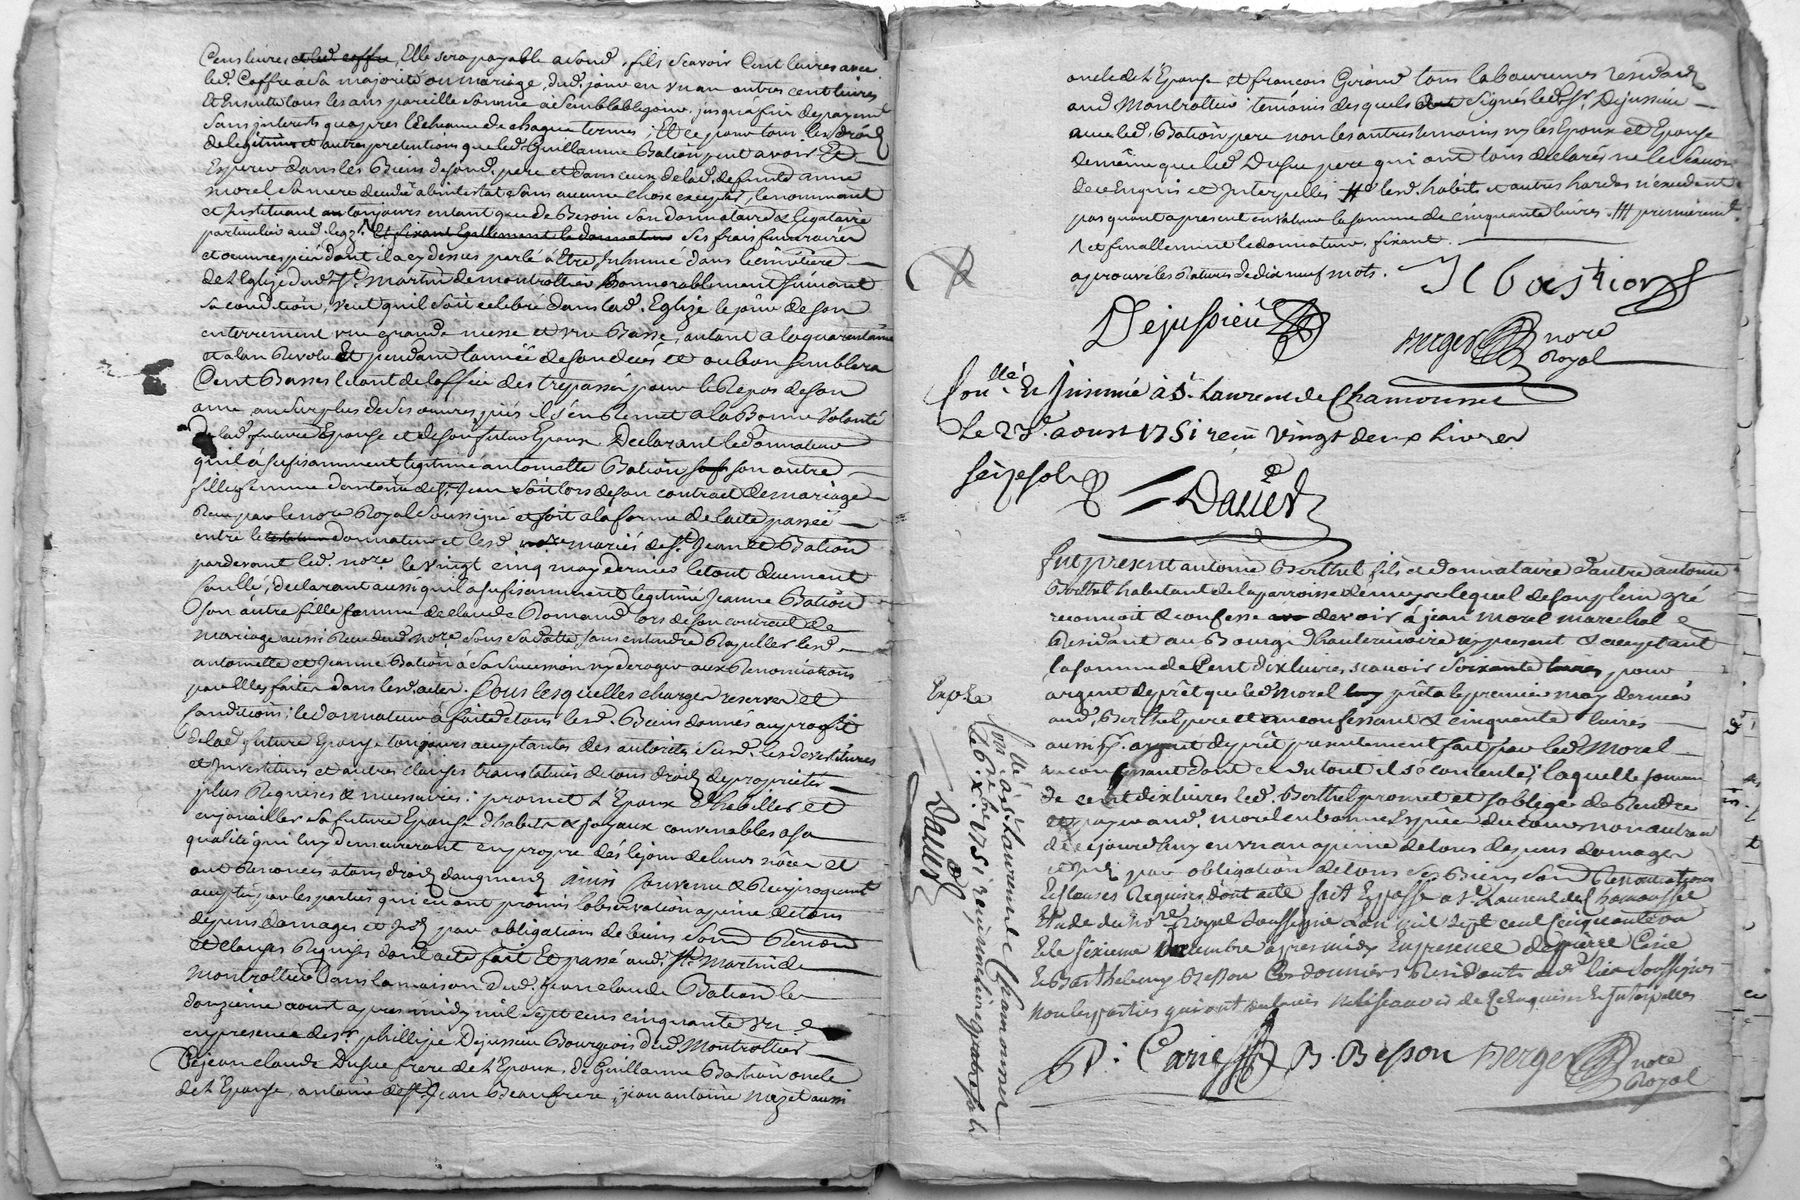 Cens livres et led. coffre, Elle sera payable aSond. fils Scavoir Cent livres avec
led. Coffre à Sa majorité ou mariage, dud. jour en un an autres cent livres
Et Ensuitte tous les ans pareille Somme à Semblable jour, jusqua fin de payemt
Sans interets quapres l'Echeance de chaque termes; Et ce pour tous les droits
de legitime et autres pretentions que led. Guillaume Bation peut avoir Et
Esperer dans les Biens de Sond. pere et dans ceux de lad. defunte anne
morel Sa mere decedée abintestat Sans aucune chose excepter, le nommant
et Instituant au toujours entant que de Besoin Son donnataire & legataire
particulier aud. legs. Et fixant Egallement le donnateur Ses frais funeraires
et oeuvres pies dont il a cy dessus parlé à Etre Inhumé dans le cimitiere
de l'Eglize dud. St. Martin de montrottier honnorablement Suivant
Sa condition, veut quil Soit celebré dans lad. Eglize le jour de Son
enterrement une grande messe et une Basse, autant a la quarantaine
et a lan Revolu Et pendant l'année de Son decés et ou bon Semblera
Cent Basses le tout de l'office des trepassés pour le Repos de Son
ame, au Surplus de Ses oeuvres pies il S'en Remet a la Bonne Volonté
de lad. future Epouse et de Son futur Epoux Declarant le donnateur
quil à Sufisamment legitimé antoinette Bation Son autre
fille femme d'antoine de St. Jean Soit lors de Son contract de mariage
Recu par le nore Royal Soussigné et Soit a la forme de l'acte passée
entre le donnateur et lesd. mariés de St. Jean et Bation
pardevant led. nore. le vingt cinq may dernier le tout duement
Conllé, declarant aussi quil a Sufisamment legitimé Jeanne Bation
Son autre fille femme de claude Romand lors de Son contract de
mariage aussi Recu dud. nore Sous Sa datte Sans entendre Rapeller lesd.
antoinette et Jeanne Bation à Sa Succession ny deroger aux Renonciations
par Elles faites dans lesd. actes. Sous lesquelles charges reserves et
Conditions; le donnateur à fait de tous lesd. Biens donnés au profit
de lad. future Epouse toujours acceptante des autorités Susd. les devestitures
et Investitures et autres clauses translatives de tous droits de proprietés
plus Requises & necessaires: promet l'Epoux d'habiller et
enjouailler Sa future Epouse d'habits & joyaux convenables a Sa
qualité qui luy demeureront en propre dès le jour de leurs nôces et
ont Renoncés a tous droits d'augment, ainsi Convenu & Reciproquemt
accepté par les parties qui en ont promis l'observation a peine de tous
depens domages et Int. par obligations de leurs Biens Soumd. Renon.
et clauses Requises dont acte fait Et passé aud. St. Martin de
Montrottier Dans la maison dud. jean claude Bation le
douzieme aoust apres midy mil Sept cens cinquante un
en presence de Sr. phillipe Dejussieu Bourgeois dud. Montrottier
De jean claude Dufue frere de l'Epoux, de Guillaume Bation oncle
de l'Epouse, antoine de St. Jean Beaufrere, jean antoine aussi
oncle de l'Epouse et francois Giraud tous laboureurs résidants
aud. Montrottier temoins desquels ont Signés led. Sr. Dejussieu
avec led. Bation pere non les autres temoins ny les Epoux et Epouse
de même que led. Dufue pere qui ont tous declarés ne le Scavoir
de ce Enquis et Interpellés # lesd. habits et autres hardes n'excedent
pas quant a present en valeur la Somme de cinquante livres. ### premierement
et finallement le donnateur. fixant.
aprouvé les Ratures de dix neuf mots.
J C bastion
Dejussieu
Berger nore Royal
Conllé. Et Insinué à St. Laurent de Chamousset
Le 23e. aoust 1751 recu Vingt deux livres
Seize sols
Dauer
fut present antoine Berthel fils et donnataire d'autre antoine
Berthel habitant de la parroisse de meys lequel de Son plein gré
reconnoit & confesse devoir à jean morel marechal
Residant au Bourg d'hauterivoire cy present & acceptant
la Somme de Cent dix livres, scavoir Soixante livres, pour
argent de prêt que led. Morel prêta le premier may dernier
aud. Berthel pere et & cinquante livres
aussi pr. argent de prêt presentement fait par led. Morel
dont et du tout il S'é contente; laquelle Somme
de cent dix livres led. Berthel promet et S'oblige de Rendre
et payer aud. morel en bonnes Especes du cours non autres
de ce jourd'huy en un an a peine de tous depens domages
et Int. par obligation de tous Ses Biens Soumd. Renonciations
Et clauses Requises, dont acte fait Et passé a St. Laurent de Chamousset
Etude du nore. Royal Soussigné L'an mil Sept cent Cinquante un
Et le Sixieme Decembre apres midy En presence de pierre Carie
Et Barthelemy Besson Cordonniers Residants aud. lieu Soussignés
non les parties qui ont declarés ne le Scavoir de ce Enquis & Interpellés
P: Carie B. Besson Berger nore Royal
Exp. le
Conllé à St. Laurent de Chamousset
le 6. Xbre 1751 recu
Dauer